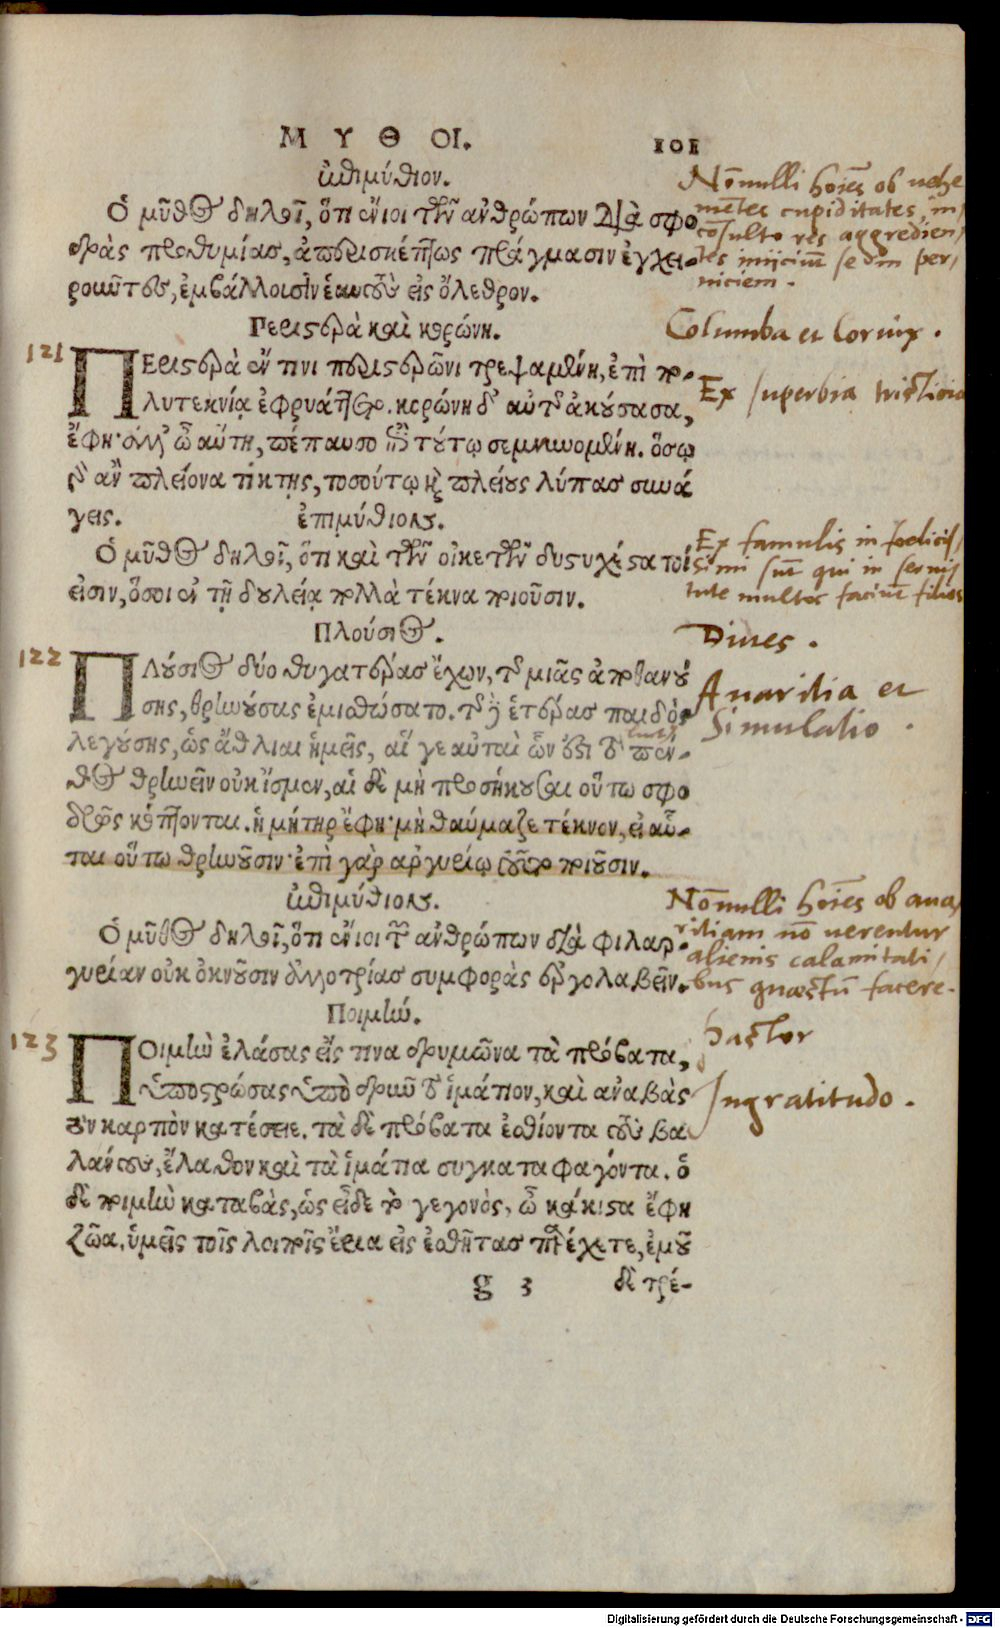 ΜΥΘΟΙ. 101
ἐπιμύθιον.
Ὁ μῦθος δηλοῖ, ὅτι ἔνιοι τῶν ἀνθρώπων διὰ σφο
δρὰς προθυμίας, ἀπερισκέπτως πράγμασιν ἐγχει-
ροιῶντες, ἐμβάλλουσιν ἑαυτοὺς εἰς ὄλεθρον.
Nōnulli hoīes ob uehe
mētes cupiditates, in/
cōsulto res aggredien/
tes iniiciūt se in per/
niciem.
Περιστερὰ καὶ κορώνη.
Columba et Cornix.
121
ΠΕριστερὰ ἔν τινι περιστερῶνι τρεφομένη, ἐπὶ πο-
λυτεκνίᾳ ἐφρυάττετο. κορώνη δ' αὐτῆς ἀκούσασα,
ἔφη· ἀλλ' ὦ αὕτη, πέπαυσο ἐπὶ τούτῳ σεμνυνομένη. ὅσῳ
γὰρ ἂν πλείονα τίκτῃς, τοσούτῳ καὶ πλείους λύπας συνά
γεις.
Ex superbia tristicia
ἐπιμύθιον.
Ὁ μῦθος δηλοῖ, ὅτι καὶ τῶν οἰκετῶν δυστυχέστατοί
εἰσιν, ὅσοι ἐν τῇ δουλείᾳ πολλὰ τέκνα ποιοῦσιν.
Ex famulis in foelicis/
simi sūt qui in serui/
tute multos faciūt filios
Πλούσιος.
Diues.
122
ΠΛούσιος δύο θυγατέρας ἔχων, τῆς μιᾶς ἀποθανού
σης, θρηνούσας ἐμισθώσατο. τῆς δὲ ἑτέρας παιδὸς
λεγούσης, ὡς ἄθλιαι ἡμεῖς, αἵ γε αὐταὶ ὧν ἐστι τὸ πέν-
θος θρηνεῖν οὐκ ἴσμεν, αἱ δὲ μὴ προσήκουσαι οὕτω σφο
δρῶς κόπτονται. ἡ μήτηρ ἔφη· μὴ θαύμαζε τέκνον, εἰ αὗ-
ται οὕτω θρηνοῦσιν· ἐπὶ γὰρ ἀργυρίῳ τοῦτο ποιοῦσιν.
Auaritia et
Simulatio.
ἐπιμύθιον.
Ὁ μῦθος δηλοῖ, ὅτι ἔνιοι τῶν ἀνθρώπων διὰ φιλαρ-
γυρίαν οὐκ ὀκνοῦσιν ἀλλοτρίας συμφορὰς ἐργολαβεῖν.
Nōnulli hoīes ob aua/
ritiam nō uerentur
alienis calamitati/
bus quæstū facere.
Ποιμήν.
Pastor
123
ΠΟιμὴν ἐλάσας εἴς τινα δρυμῶνα τὰ πρόβατα,
ὑποστρώσας ὑπὸ δρυῒ τὸ ἱμάτιον, καὶ ἀναβὰς
τὸν καρπὸν κατέσειε. τὰ δὲ πρόβατα ἐσθίοντα τοὺς βα
λάνους, ἔλαθον καὶ τὰ ἱμάτια συγκαταφαγόντα. ὁ
δὲ ποιμὴν καταβὰς, ὡς εἶδε τὸ γεγονὸς, ὦ κάκιστα ἔφη
ζῶα, ὑμεῖς τοῖς λοιποῖς ἔρια εἰς ἐσθῆτας παρέχετε, ἐμοῦ
Ingratitudo.
g 3 δὲ τρέ-
Digitalisierung gefördert durch die Deutsche Forschungsgemeinschaft - DFG